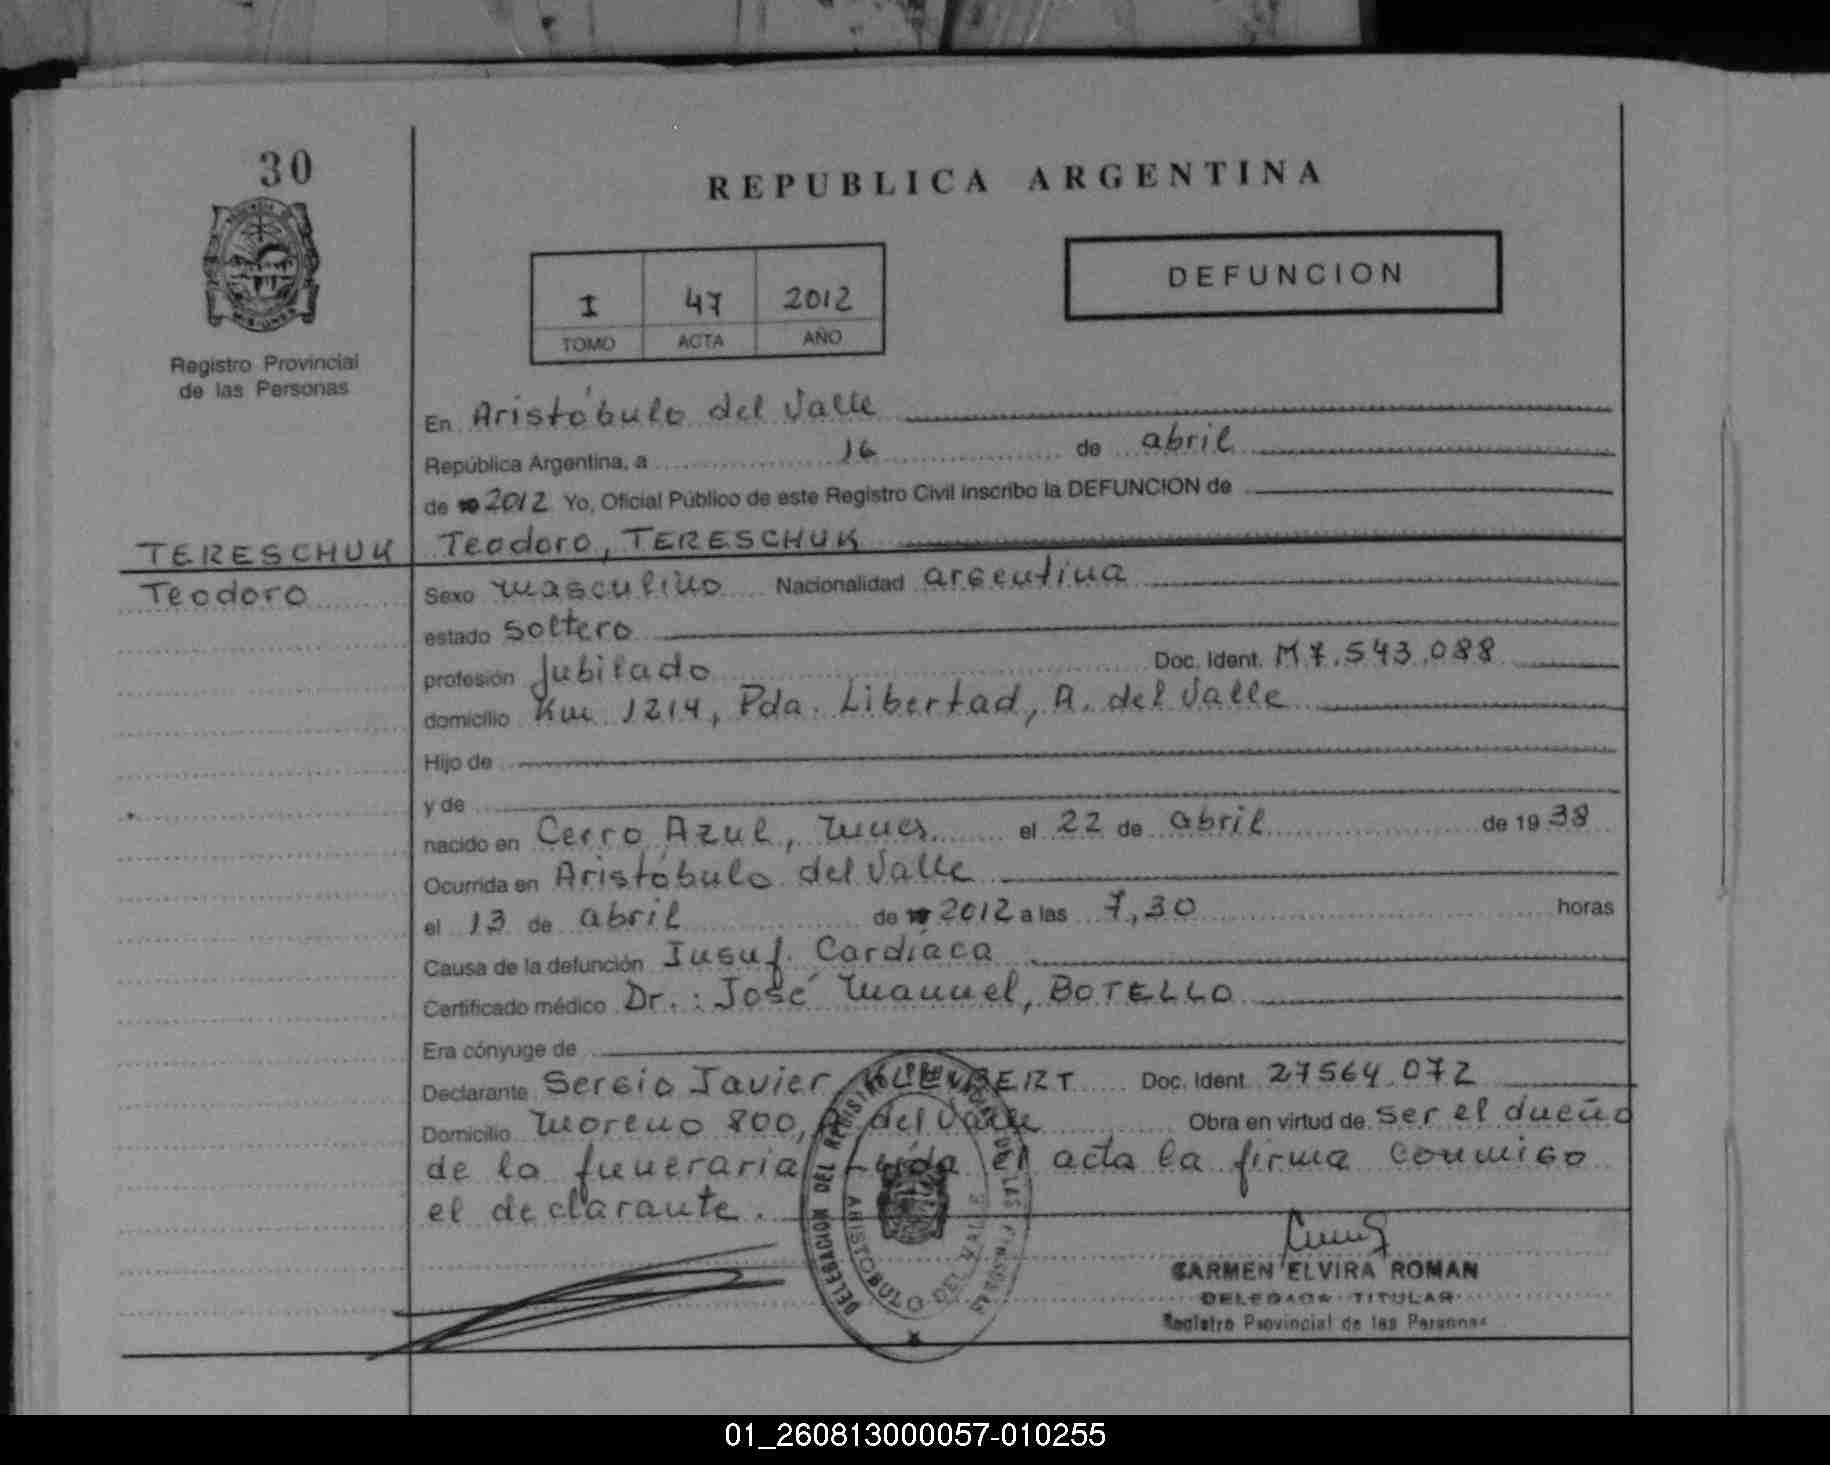 30
REPUBLICA ARGENTINA
DEFUNCION
I 47 2012
TOMO ACTA AÑO
Registro Provincial
de las Personas
En Aristóbulo del Valle
República Argentina, a 16 de abril
de 2012 Yo, Oficial Público de este Registro Civil inscribo la DEFUNCION de
TERESCHUK
Teodoro, TERESCHUK
Teodoro
Sexo masculino Nacionalidad argentina
estado soltero
profesión Jubilado Doc. Ident. M 7.543.088
domicilio Km 1214, Pda. Libertad, A. del Valle
Hijo de
y de
nacido en Cerro Azul, Mnes. el 22 de abril de 19 38
Ocurrida en Aristóbulo del Valle
el 13 de abril de 2012 a las 7,30 horas
Causa de la defunción Insuf. Cardíaca
Certificado médico Dr.: José Manuel, BOTELLO
Era cónyuge de
Declarante Sergio Javier Doc. Ident. 27564.072
Domicilio Moreno 800, A del Valle Obra en virtud de ser el dueño
de la funeraria Leída el acta la firma conmigo
el declarante.
DELEGACION DEL REGISTRO PROVINCIAL DE LAS PERSONAS
ARISTOBULO DEL VALLE
CARMEN ELVIRA ROMAN
DELEGADA TITULAR
Registro Provincial de las Personas
01_260813000057-010255